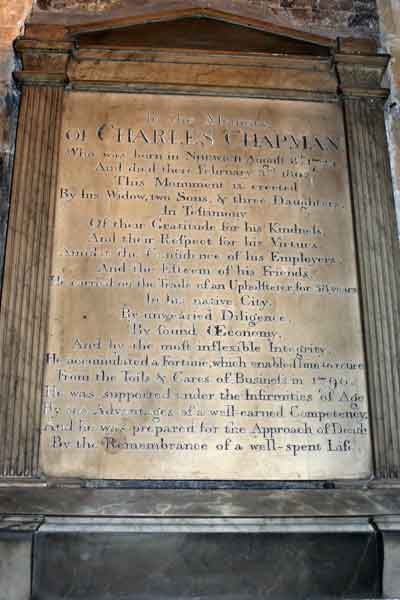 To the Memory
OF CHARLES CHAPMAN
Who was born in Norwich August 8th.
And died there February 3d. 1802
This Monument is erected
By his Widow, two Sons, & three Daughters,
In Testimony
Of their Gratitude for his Kindneſs,
And their Reſpect for his Virtues.
Amidst the Confidence of his Employers,
And the Eſteem of his Friends,
He carried on the Trade of an Upholſterer, for 38 years
In his native City.
By unwearied Diligence,
By ſound Œconomy,
And by the moſt inflexible Integrity,
He accumulated a Fortune, which enabled him to retire
From the Toils & Cares of Buſineſs in 1796.
He was supported under the Infirmities of Age
By the Advantages of a well-earned Competency,
And he was prepared for the Approach of Death
By the Remembrance of a well-spent Life.